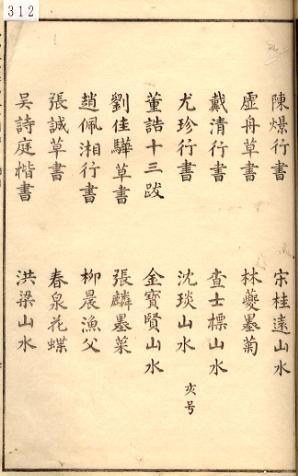 312
陳爆行書
虛舟草書
戴清行書
尤珍行書
董誥十三跋
劉佳驊草書
趙佩湘行書
張誠草書
吳詩庭楷書
宋桂遠山水
林夔墨菊
查士標山水
沈琰山水 亥号
金寶賢山水
張麟墨菜
柳晨漁父
春泉花蝶
洪梁山水